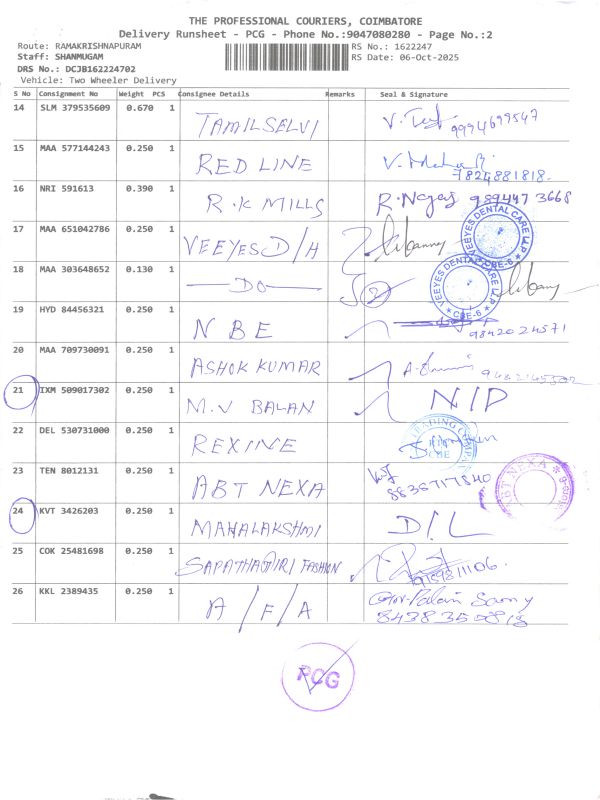 THE PROFESSIONAL COURIERS, COIMBATORE
Delivery Runsheet - PCG - Phone No.:9047080280 - Page No.:2
Route: RAMAKRISHNAPURAM RS No.: 1622247
Staff: SHANMUGAM RS Date: 06-Oct-2025
DRS No.: DCJB162224702
Vehicle: Two Wheeler Delivery
S No Consignment No Weight PCS Consignee Details Remarks Seal & Signature
14 SLM 379535609 0.670 1 TAMILSELVI 9994699547
15 MAA 577144243 0.250 1 RED LINE 7824881818.
16 NRI 591613 0.390 1 R.K MILLS R.Nagaj 989447 3668
17 MAA 651042786 0.250 1 VEEYES D/H VEEYES DENTAL CARE LLP CBE-6
18 MAA 303648652 0.130 1 DO 2 VEEYES DENTAL CARE LLP CBE-6
19 HYD 84456321 0.250 1 NBE 9842024571
20 MAA 709730091 0.250 1 ASHOK KUMAR
21 IXM 509017302 0.250 1 M.V BALAN N/D
22 DEL 530731000 0.250 1 REXINE CBE
23 TEN 8012131 0.250 1 ABT NEXA 8838717840 ABT NEXA
24 KVT 3426203 0.250 1 MAHALAKSHMI D/L
25 COK 25481698 0.250 1 SAPATHAGIRI FASHION
26 KKL 2389435 0.250 1 A/F/A
PCG